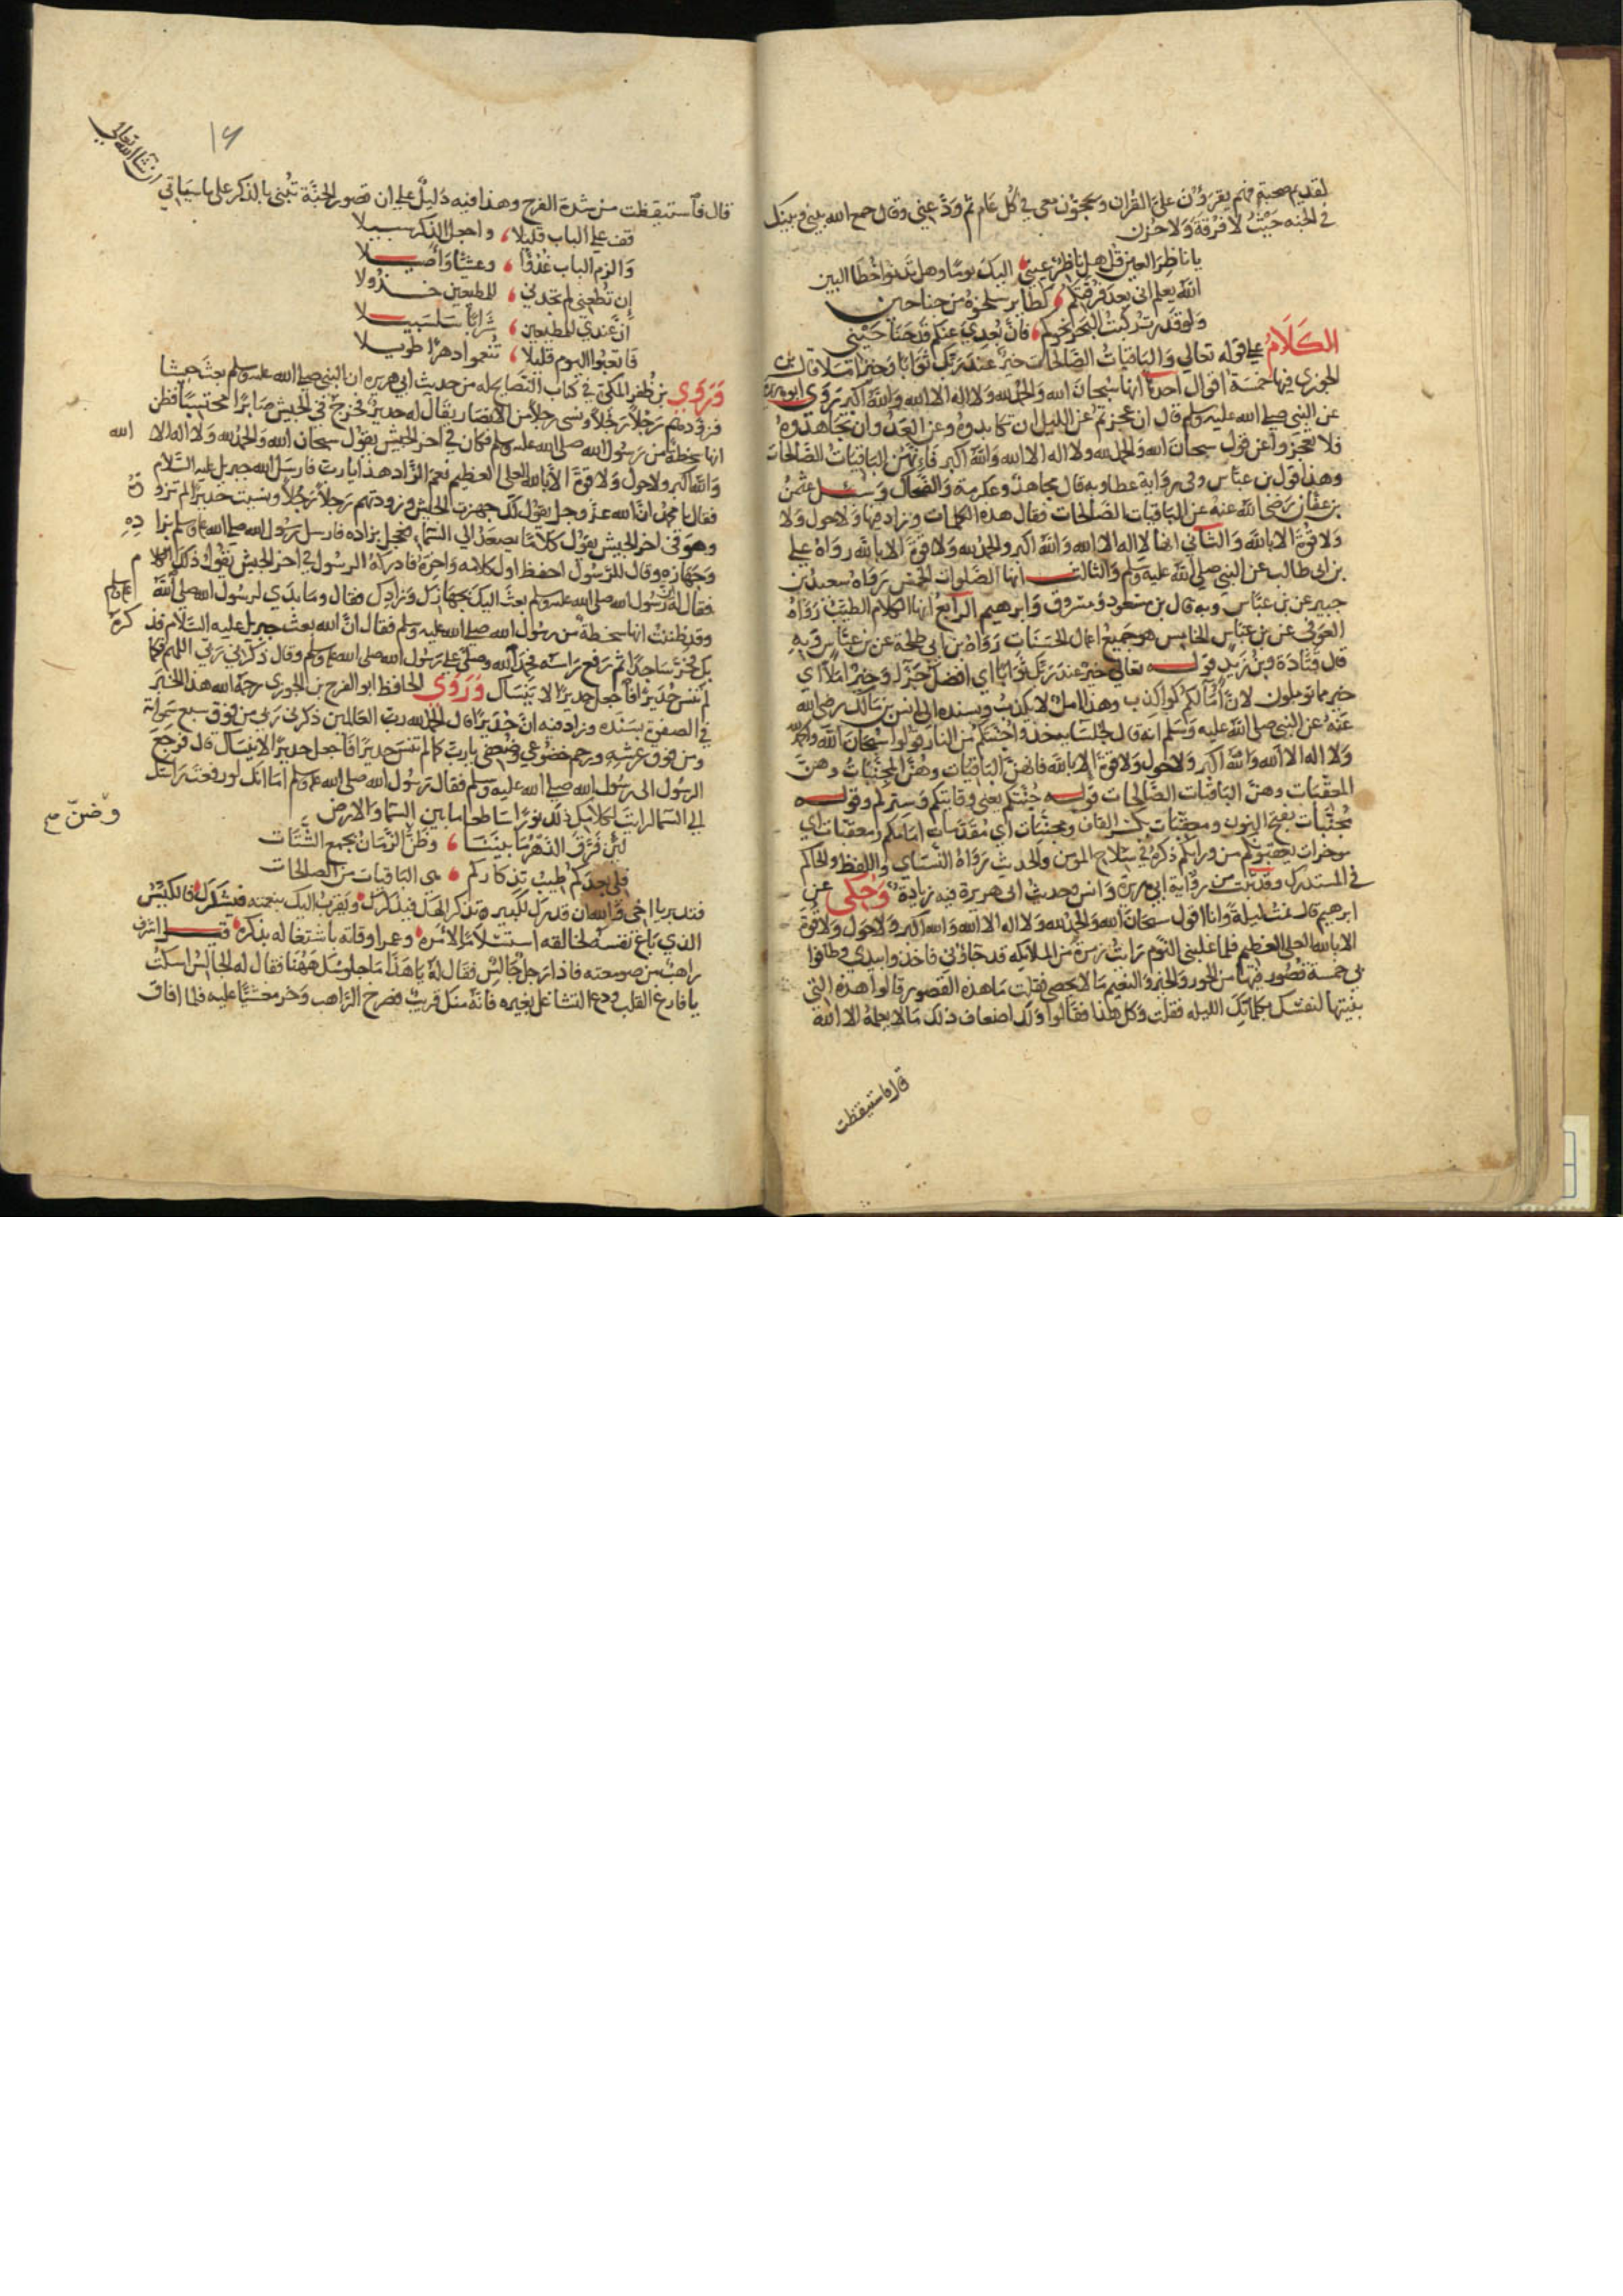 لقديم صحبتهم فهم يقرؤن على القران ويحجون معى في كل عام ثم ودعني وقال جمع الله بيني وبينك
في الجنه حيث لا فرقة ولا حزن
يا ناظر العين قل هل ناظر عيني اليك يوما وهل تدنوا خطا البين
الله يعلم اني بعد فرقتكم كطاير سلخوه من جناحين
ولو قدرت ركبت البحر نحوكم فان بعدي عنكم قد حنا حيني
الكلام على قوله تعالي والباقيات الصالحات خير عند ربك ثوابا وخير املا قال بن
الجوزي فيها خمسة اقوال احدها انها سبحان الله والحمد لله ولا اله الا الله والله اكبر روى ابو هريرة
عن النبي صلى الله عليه وسلم قال ان عجزتم عن الليل ان تكابدوه وعن العدو ان تجاهدوه
فلا تعجزوا عن قول سبحان الله والحمد لله ولا اله الا الله والله اكبر فانهن الباقيات الصالحات
وهذا قول بن عباس وفى رواية عطا وبه قال مجاهد وعكرمة والضحاك وسئل عثمن
بن عفان رضي الله عنه عن الباقيات الصالحات فقال هذه الكلمات وزاد فيها ولا حول ولا
ولا قوة الا بالله والثاني انها لا اله الا الله والله اكبر والحمد لله ولا قوة الا بالله رواه علي
بن ابي طالب عن النبي صلى الله عليه وسلم والثالث انها الصلوات الخمس رواه سعيد بن
جبير عن بن عباس وبه قال بن مسعود ومسروق وابرهيم الرابع انها الكلام الطيب رواه
العوفي عن بن عباس الخامس هو جميع اعمال الحسنات رواه بن ابي طلحة عن بن عباس وبه
قال قتادة وبن زيد قوله تعالى خير عند ربك ثوابا اي افضل جزا وخير املا اي
خير مما توملون لان امالكم كواذب وهذا امل لا يكذب وبسنده الى انس بن مالك رضى الله
عنه عن النبي صلى الله عليه وسلم انه قال لجلسايه خذوا جنتكم من النار قولوا سبحان الله والحمد لله
ولا اله الا الله والله اكبر ولا حول ولا قوة الا بالله فانهن الباقيات وهن المجنبات وهن
المعقبات وهن الباقيات الصالحات قوله جنتكم يعني وقايتكم وستركم وقوله
مجنبات بفتح النون ومعقبات بكسر القاف ومجنبات اي مقدمات امامكم ومعقبات اي
موخرات يعقبونكم من ورائكم ذكره في سلاح المومن والحديث رواه النساي واللفظ والحاكم
في المستدرك وقد ثبت من رواية ابي هريرة وانس وحديث ابى هريرة فيه زيادة وحكى عن
ابرهيم قال نمت ليلة وانا اقول سبحان الله والحمد لله ولا اله الا الله والله اكبر ولا حول ولا قوة
الا بالله العلي العظيم فلما غلبني النوم رايت زمرة من الملائكه قد جاؤني فاخذوا بيدي وطافوا
بي خمسة قصور فيها من الحور والخير والنعيم ما لا يحصى فقلت ما هذه القصور قالوا هذه التي
بنيتها لنفسك بكلماتك الليله فقلت وكل هذا فقالوا ولك اضعاف ذلك مالا يعلمه الا الله
قال فاستيقظت
١٦
ان شا الله تعالى
قال فاستيقظت من شدة الفرح وهذا فيه دليل على ان قصور الجنة تبنى بالذكر على ما سياتي
قف على الباب قليلا واجعل الذكر سبيلا
والزم الباب غدوا وعشيا واصيلا
ان تطعني لم تجدني للمطيعين خذولا
ان عندي للمطيعين شرابا سلسبيلا
فاتعبوا اليوم قليلا تنعموا دهرا طويلا
وروى بن ظفر المكي في كتاب النصايح له من حديث ابي هريره ان النبي صلى الله عليه وسلم بعث جيشا
فزودهم رجلا رجلا ونسى رجلا من الانصار يقال له حدير فخرج في الجيش صابرا محتسبا فظن
انها سخطة من رسول الله صلى الله عليه وسلم فكان في اخر الجيش يقول سبحان الله والحمد لله ولا اله الا الله
والله اكبر ولا حول ولا قوة الا بالله العلي العظيم نعم الزاد هذا يا رب فارسل الله جبريل عليه السلام
فقال يا محمد ان الله عز وجل يقول لك جهزت الجيش وزودتهم رجلا رجلا ونسيت حديرا لم تزوده
وهو في اخر الجيش يقول كلاما يصعد الي السما فعجل بزاده فارسل رسول الله صلى الله عليه وسلم بزاده
وجهازه وقال للرسول احفظ اول كلامه واخره فادركه الرسول في اخر الجيش يقول ذلك الكلام
فقال له ان رسول الله صلى الله عليه وسلم بعث اليك بجهازك وزادك فقال وما بدي لرسول الله صلى الله
وقد ظننت انها سخطة من رسول الله صلى الله عليه وسلم فقال ان الله بعث جبريل عليه السلام فذكره
بك فخر ساجدا ثم رفع راسه فحمد الله وصلى على رسول الله صلى الله عليه وسلم وقال ذكرني ربي اللهم فكما
لم تنس حديرا فاجعل حديرا لا ينساك وروى الحافظ ابو الفرج بن الجوزي رحمه الله هذا الخبر
في الصفوة بسنده وزاد فيه ان حديرا قال الحمد لله رب العالمين ذكرني ربى من فوق سبع سمواته
ومن فوق عرشه ورحم خضوعي وضعفي يا رب كما لم تنس حديرا فاجعل حديرا لا ينساك قال فرجع
الرسول الى رسول الله صلى الله عليه وسلم فقال رسول الله صلى الله عليه وسلم اما انك لو رفعت راسك
الي السما لرايت لكلامك ذلك نورا ساطعا ما بين السما والارض
وضن صح
لئن فرق الدهر ما بيننا وظن الزمان بجمع الشتات
فلى بعدكم طيب تذكاركم هى الباقيات من الصالحات
فتدبر يا اخى واسان قدرك لكبير تذكر الحق فيذكرك وتقرب اليك بنعمته فشكرك فالكيس
الذي باع نفسه لخالقه استسلاما لامره وعمر اوقاته باشتغاله بذكره قيل اشرف
راهب من صومعته فاذا رجل جالس فقال له يا هذا ما جلوسك ههنا فقال له الجالس اسكت
يا فارغ القلب ودع التشاغل بغيره فانه منك قريب فصرخ الراهب وخر مغشيا عليه فلما افاق